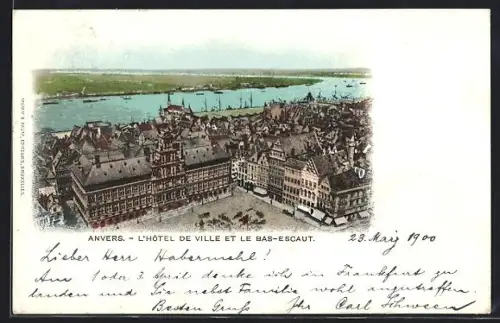 ANVERS. - L'HÔTEL DE VILLE ET LE BAS-ESCAUT.
23. März 1900
Lieber Herr Habermehl!
Am 1 oder 2 April denke ich in Frankfurt zu
landen und Sie nebst Familie wohl anzutreffen.
Besten Gruß Ihr Carl